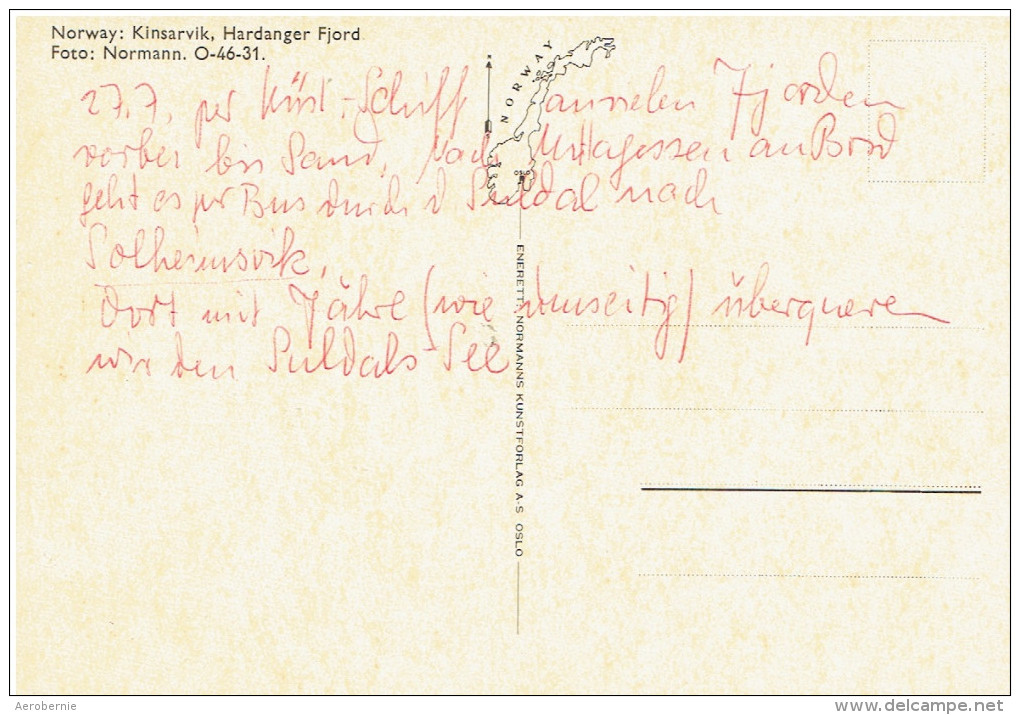 Norway: Kinsarvik, Hardanger Fjord
Foto: Normann. O-46-31.
NORWAY
OSLO
27.7. per Küst-Schiff an vielen Fjorden
vorbei bis Sand, Nach Mittagessen an Bord
geht es per Bus durch d Suldal nach
Solheimsvik,
dort mit Fähre (wie umseitig) überqueren
wir den Suldals-See
ENERETT: NORMANNS KUNSTFORLAG A-S OSLO
Aerobernie
delcampe.net